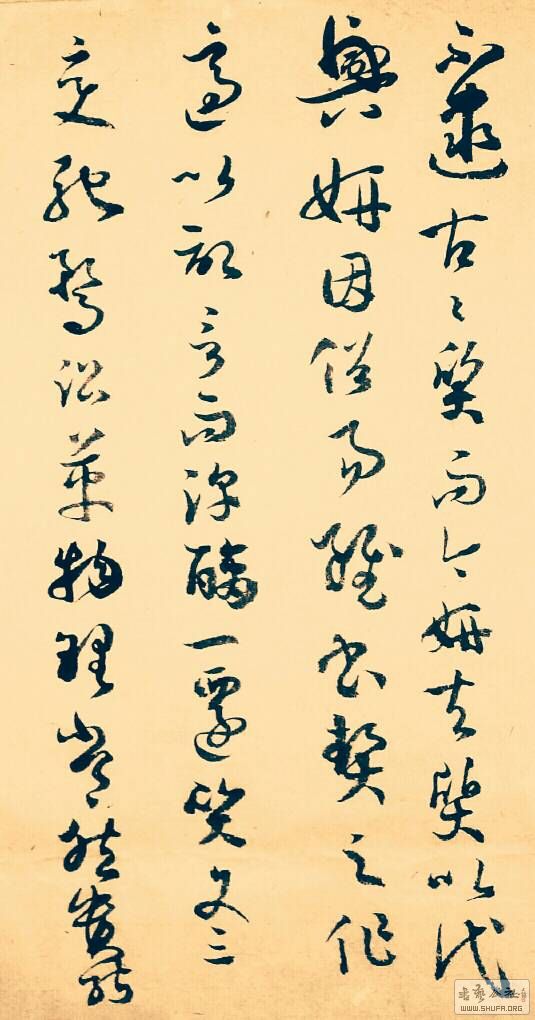 不逮古古質而今妍夫質以代
興妍因俗易雖書契之作
適以記言而淳醨一遷質文三
變馳騖沿革物理常然貴能
WWW.SHUFA.ORG